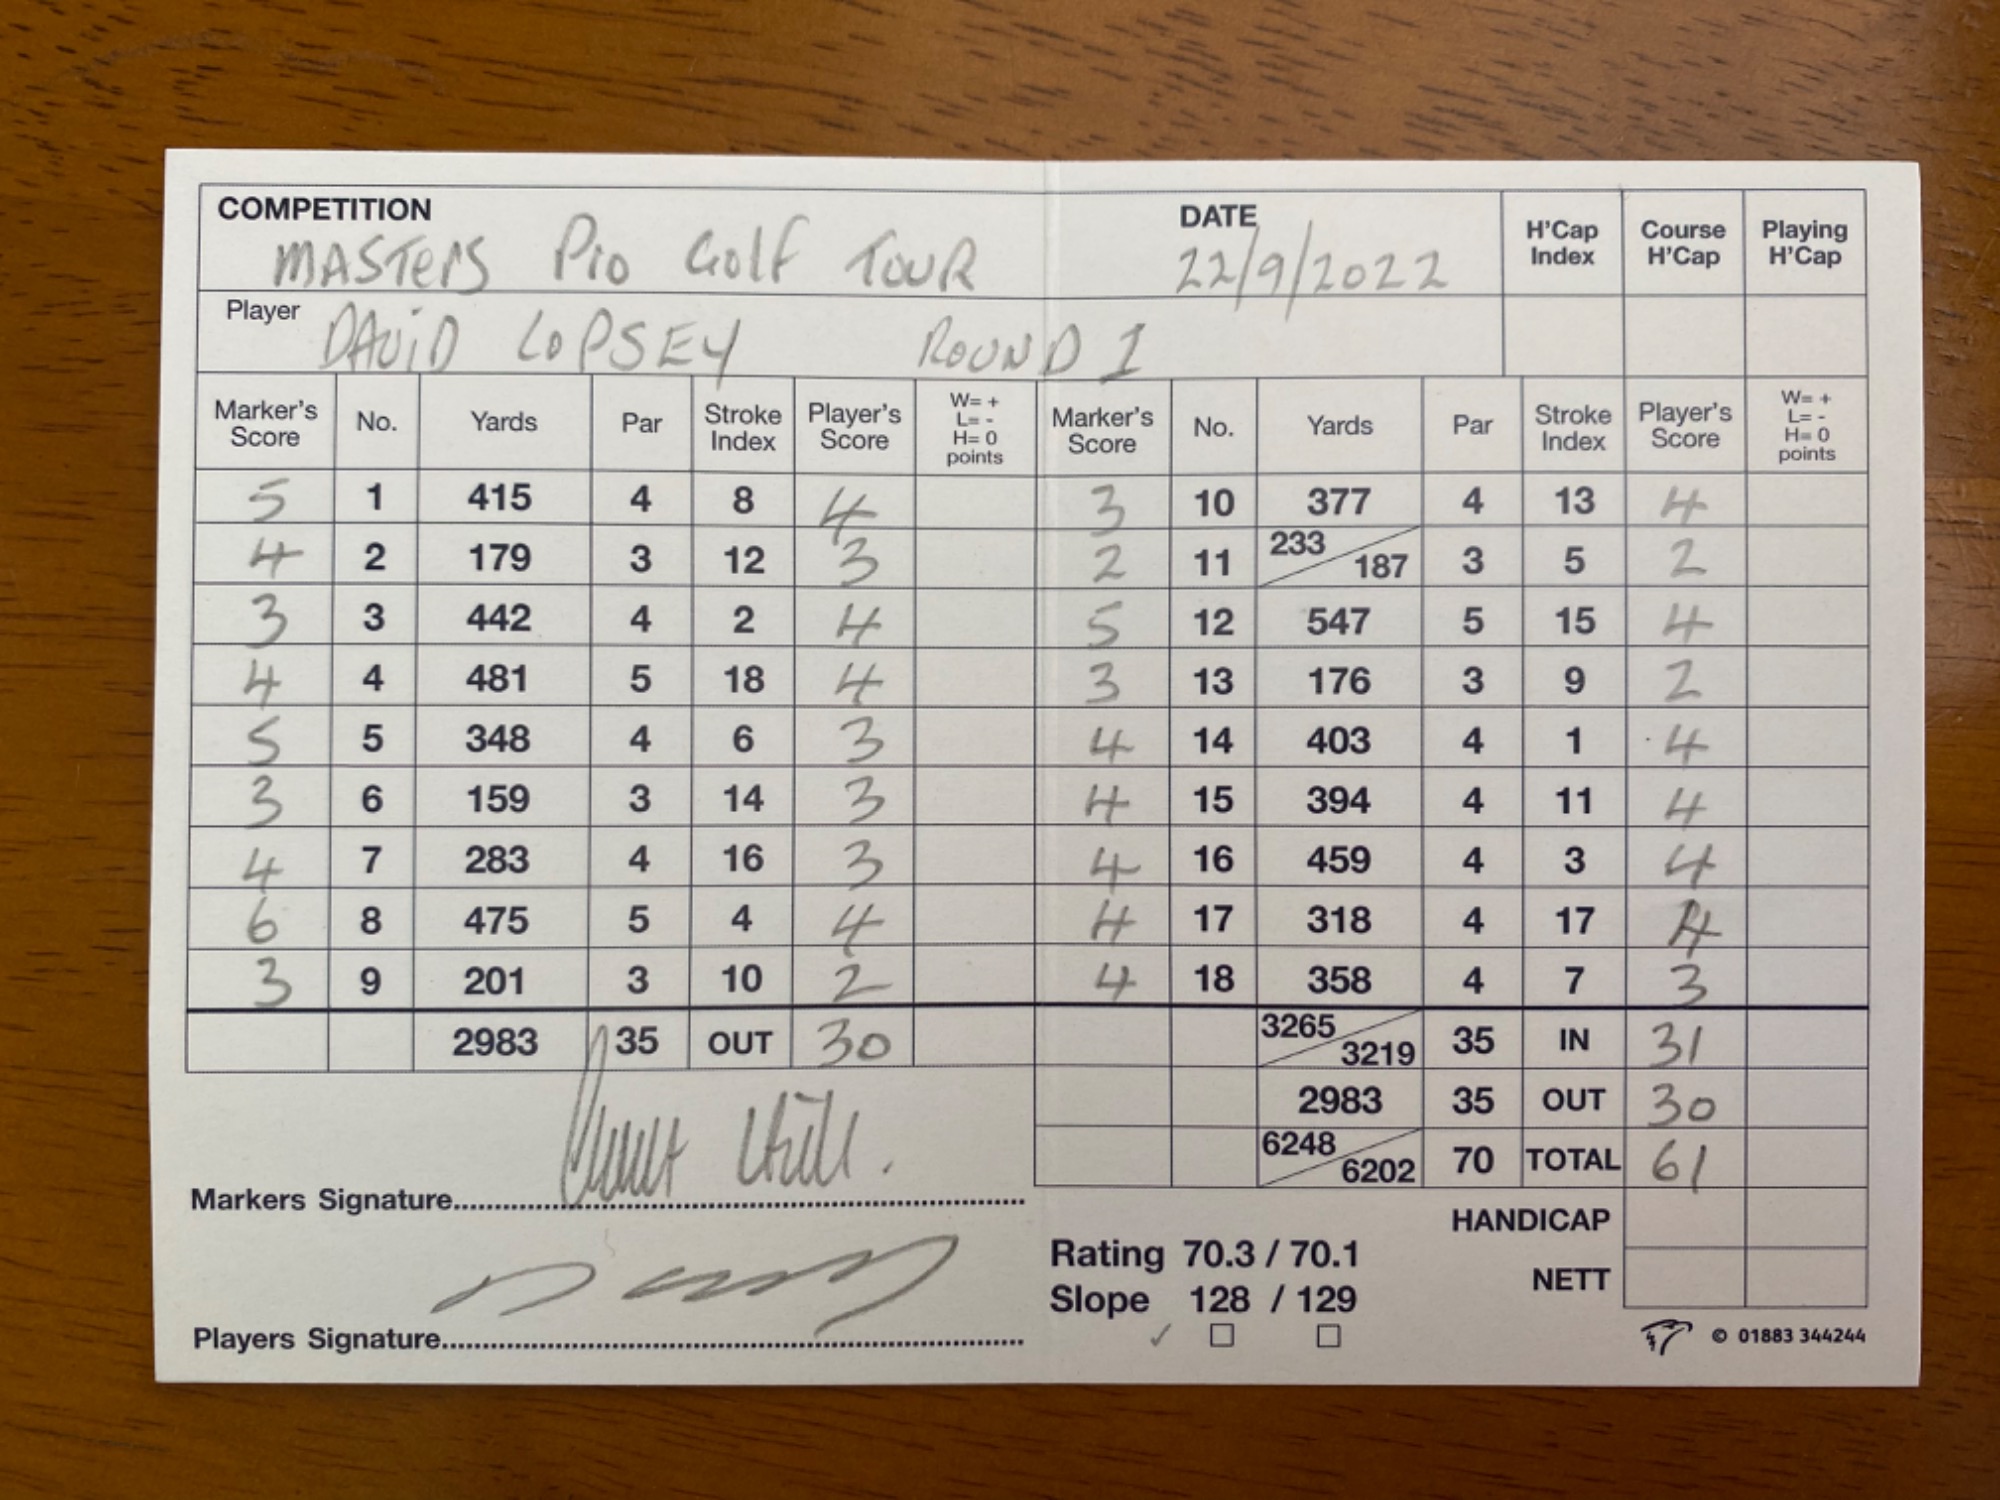 COMPETITION DATE H'Cap Index Course H'Cap Playing H'Cap
MASTERS Pro Golf TOUR 22/9/2022
Player DAVID LOPSEY ROUND 1
Marker's Score No. Yards Par Stroke Index Player's Score W= + L= - H= 0 points Marker's Score No. Yards Par Stroke Index Player's Score W= + L= - H= 0 points
5 1 415 4 8 4 3 10 377 4 13 4
4 2 179 3 12 3 2 11 233 187 3 5 2
3 3 442 4 2 4 5 12 547 5 15 4
4 4 481 5 18 4 3 13 176 3 9 2
5 5 348 4 6 3 4 14 403 4 1 4
3 6 159 3 14 3 4 15 394 4 11 4
4 7 283 4 16 3 4 16 459 4 3 4
6 8 475 5 4 4 4 17 318 4 17 4
3 9 201 3 10 2 4 18 358 4 7 3
2983 35 OUT 30 3265 3219 35 IN 31
2983 35 OUT 30
6248 6202 70 TOTAL 61
Markers Signature
HANDICAP
Rating 70.3 / 70.1
NETT
Slope 128 / 129
Players Signature ✓ □ □ © 01883 344244